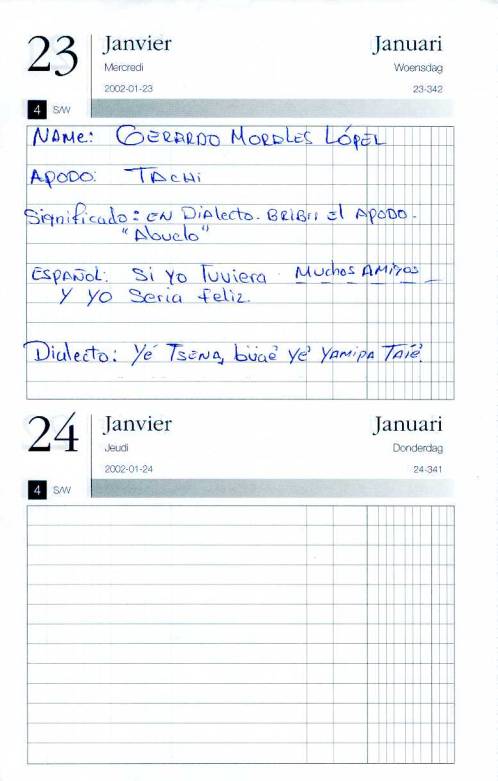 23 Janvier Januari
Mercredi Woensdag
2002-01-23 23-342
4 S/W
NAME: GERARDO MORALES LÓPEL
APODO: TACHi
Significado: EN DiAlecto. BRIBII El APODO.
"Abuelo"
ESPAÑOL: Si Yo Tuviera Muchos AMigos
Y yo Seria feliz.
Dialecto: Yé TSENA, büaé yé YAMiPA TAié.
24 Janvier Januari
Jeudi Donderdag
2002-01-24 24-341
4 S/W